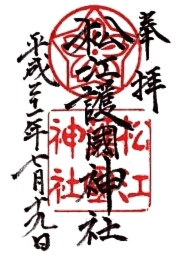 奉拝
松江護國神社
平成二十一年七月十九日
松江
神社